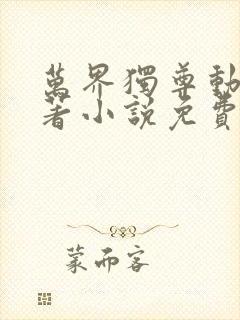 萬界獨尊動
著小說免費
蒙而客